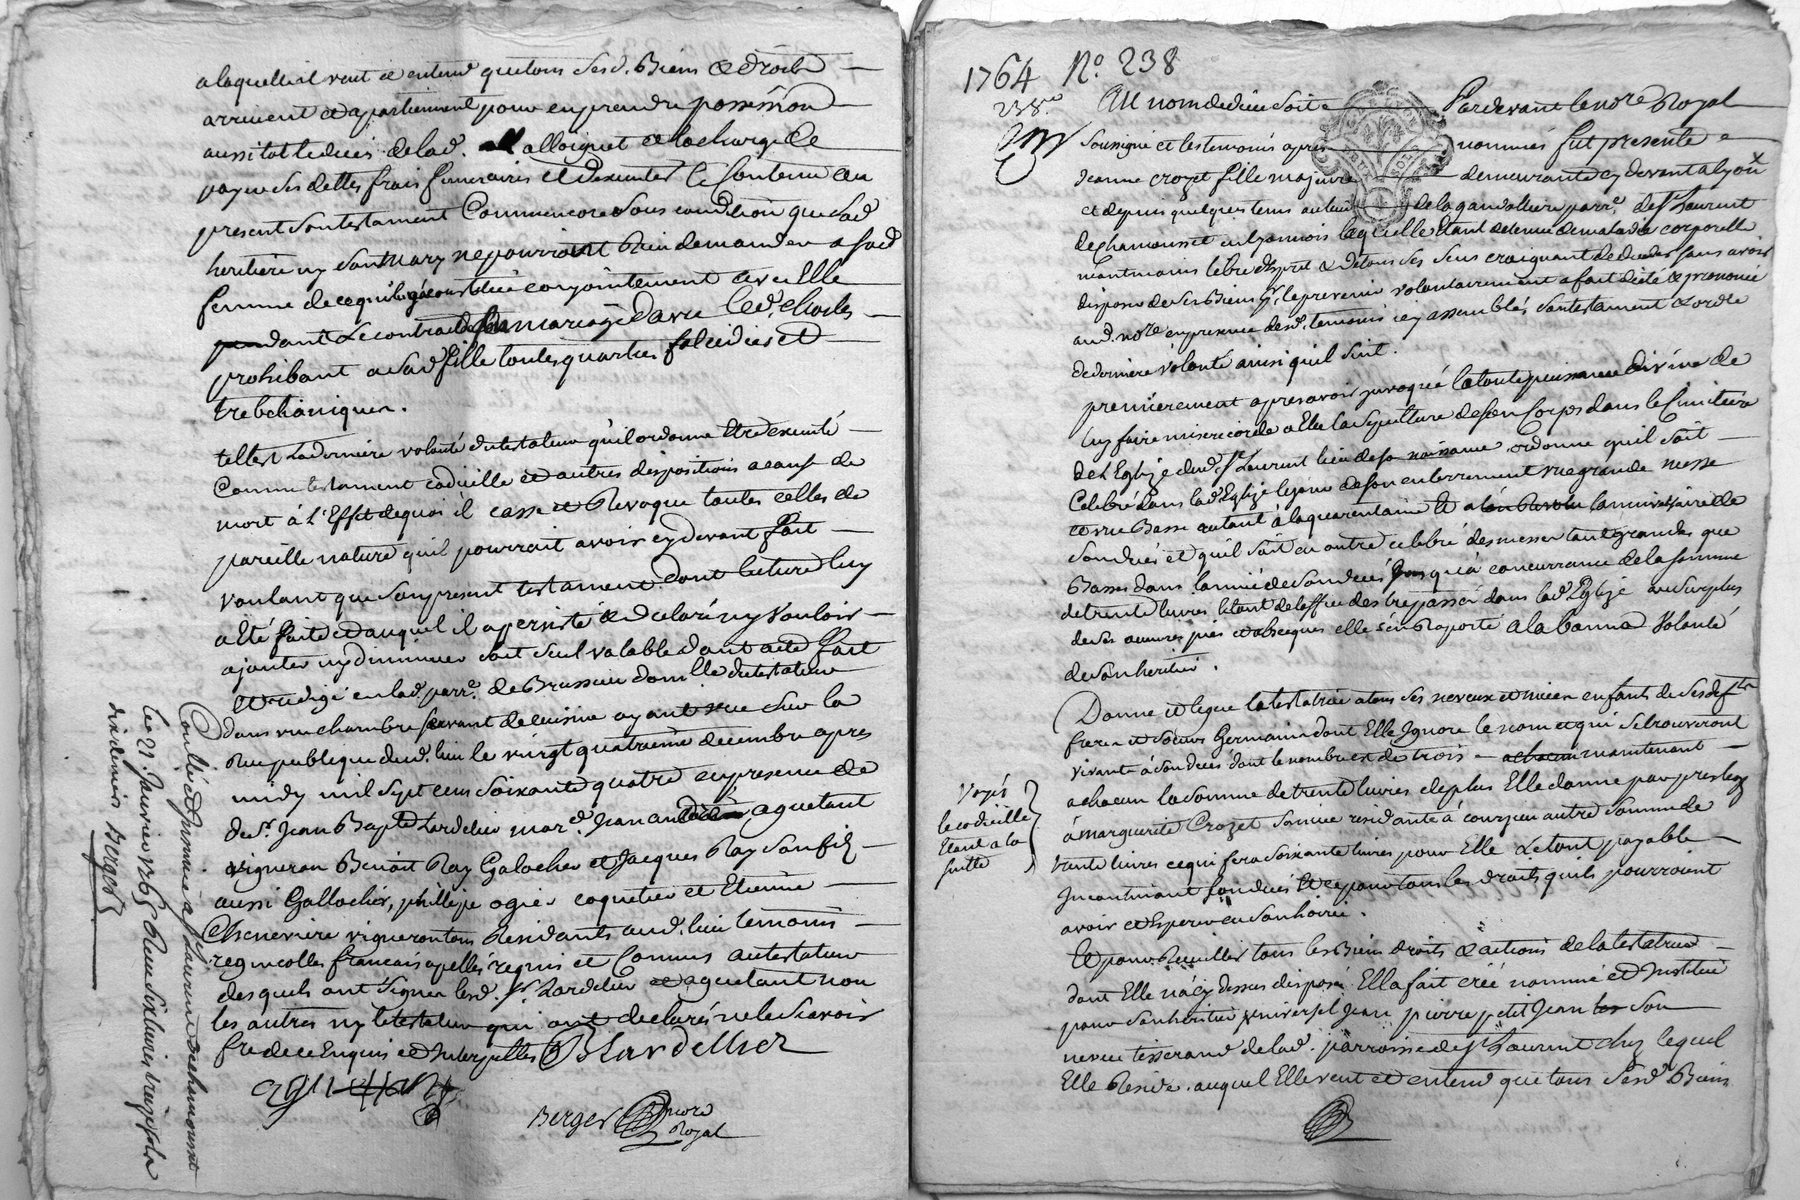 a laquelle il veut et entend que tous sesd. Biens et droits
arrivent et apartiennent pour en prendre possession
aussitot le décés de lad. alloignet et la charge de
payer ses dettes frais funeraires et d'executer le contenu au
present son testament Comme encore sous condition que sad
heritiere ny son mary ne pourront Rien demander a sad
femme de ce qui luy a constitué conjointement avec Elle
pendant le contract de son mariage d'avec led. Charles
prohibant a sad fille toutes quartes falcidies et
trebelianiques.
telle est La derniere volonté du testateur qu'il ordonne Etre executé
Comme testament codicille et autres dispositions a cause de
mort à L'Effet de quoi il casse et Revoque toutes celles de
pareille nature qu'il pourrait avoir cy devant fait
voulant que son present testament dont lecture luy
a Eté faite et auquel il a persisté et declaré n'y vouloir
ajouter ny diminuer soit seul valable dont acte fait
et redigé en lad. parr.e de Brussieu domicile du testateur
dans une chambre servant de cuisine ayant vue sur la
Rue publique dud. lieu le vingt quatrieme decembre apres
midy mil sept cens soixante quatre en presence de
de Sr. Jean Bapte Lardelier mard. Jean agnetant
vigneron Benoit Ray Galocher et Jacques Ray son fils
aussi Gallochier, philippe ogier coquetier et Etienne
Cheneviere vigneron tous Residants aud. lieu temoins
regnicolles francais apellés requis et Connus au testateur
desquels ont signer lesd. Sr Lardelier et agnetant non
les autres ny le testateur qui ont declarés ne le Scavoir
fre de ce Enquis et Interpellés BLardellier
Berger nore
Royal
Conllé et Insinué a St Laurent de chamousset
le 21 Janvier 1765 Reçu six livres
dix deniers Berger
1764 No. 238
238.e
Au nom de dieu soit Pardevant le nore Royal
Soussigné et les temoins apres nommés fut presente
Jeanne crozet fille majeure demeurante cy devant a lyon
et depuis quelques tems au lieu de la gandolliere parr.e de St Laurent
de chamousset en lyonnois laquelle Etant detenue de maladie corporelle
neantmoins libre d'Esprit et de tous ses sens craignant de deceder sans avoir
disposer de ses Biens pr. le prevenir volontairement a fait dicté et prononcé
aud. nore en presence desd. temoins icy assemblés son testament et ordre
de derniere volonté ainsi quil suit.
premierement apres avoir invoquée la toute puissance divine de
luy faire misericorde a Elu la sepulture de son Corps dans le Cimitiere
de l'Eglize dud. St Laurent lieu de sa naissance ordonne quil soit
Celebré dans lad. Eglize le jour de son enterrement une grande messe
et une Basse autant à la quarantaine et a l'anniversaire de
son dués et quil soit en outre celebré des messes tant grandes que
Basses dans l'année de son dués jusqu'à concurrance de la somme
de trente livres letout de l'office des trepassés dans lad. Eglize au surplus
de ses aumones pies et obseques elle s'en Raporte a la bonne Volonté
de son heritier.
Donne et legue la testatrice a tous ses neveux et nieces enfants de ses deffts
freres et soeurs Germains dont Elle Ignore le nom et qui se trouveront
vivants à son dués dont le nombre est de trois maintenant
a chacun la somme de trente livres de plus Elle donne par preleg
à marguerite Crozet sa niece residante à courzieu autre somme de
trente livres ce qui fera soixante livres pour Elle Le tout payable
Incontinant son dués et ce pour tous les droits quils pourroient
avoir et Esperer en son hoirie.
Voyés
le codicille
Etant a la
suitte
Et pour Recueillir tous les Biens droits et actions de la testatrice
dont Elle n'a cy dessus disposé Elle a fait créé nommé et Institué
pour son heritier universel Jean pierre petit Jean son
neveu tisserand de lad. parroisse de St Laurent chez lequel
Elle Reside. auquel Elle veut et entend que tous Sesd. Biens